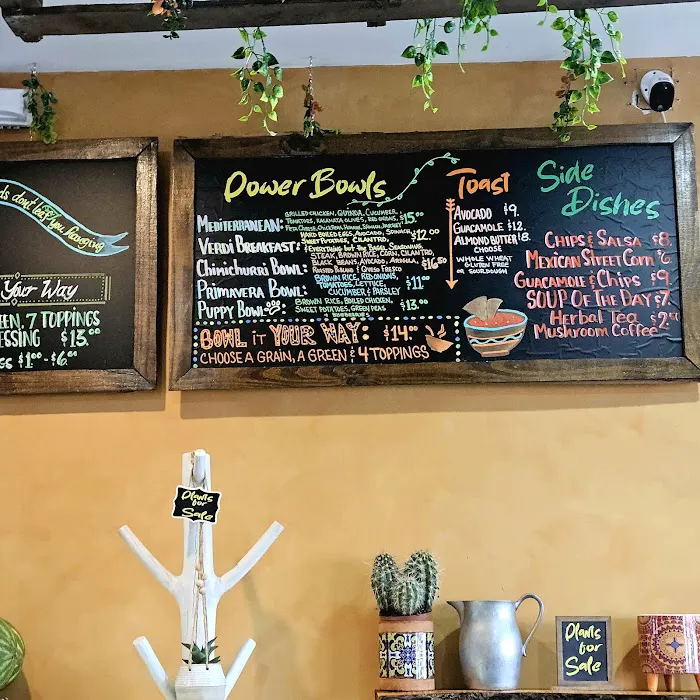 ds dont leaf you hanging
Your Way
EEN, 7 TOPPINGS
ESSING $13.00
$1.00 - $6.00
Power Bowls
MEDITERRANEAN: GRILLED CHICKEN, QUINOA, CUCUMBER,
TOMATOES, KALAMATA OLIVES, RED ONIONS, $15.00
FETA CHEESE,
VERDI BREAKFAST: HARD BOILED EGGS, AVOCADO, SPINACH, $12.00
SWEET POTATOES, CILANTRO,
& EVERYTHING BUT THE BAGEL SEASONING
CHIMICHURRI BOWL: STEAK, BROWN RICE, CORN, CILANTRO,
BLACK BEANS, AVOCADO, ARUGULA, $16.50
& QUESO FRESCO
PRIMAVERA BOWL: BROWN RICE, RED ONIONS, $11.00
TOMATOES, LETTUCE,
CUCUMBER & PARSLEY
PUPPY BOWL: BROWN RICE, BOILED CHICKEN, $13.00
SWEET POTATOES, GREEN PEAS
& BLUEBERRIES
BOWL it YOUR WAY: $14.00
CHOOSE A GRAIN, A GREEN & 4 TOPPINGS
Toast
AVOCADO $9.
GUACAMOLE $12.
ALMOND BUTTER $8.
CHOOSE
WHOLE WHEAT
GLUTEN FREE
OR SOURDOUGH
Side
Dishes
CHIPS & SALSA $8.
MEXICAN STREET CORN $6.
GUACAMOLE & CHIPS $9.
SOUP OF THE DAY $7.
Herbal Tea $2.50
Mushroom Coffee
Plants
for
Sale
Plants
for
Sale